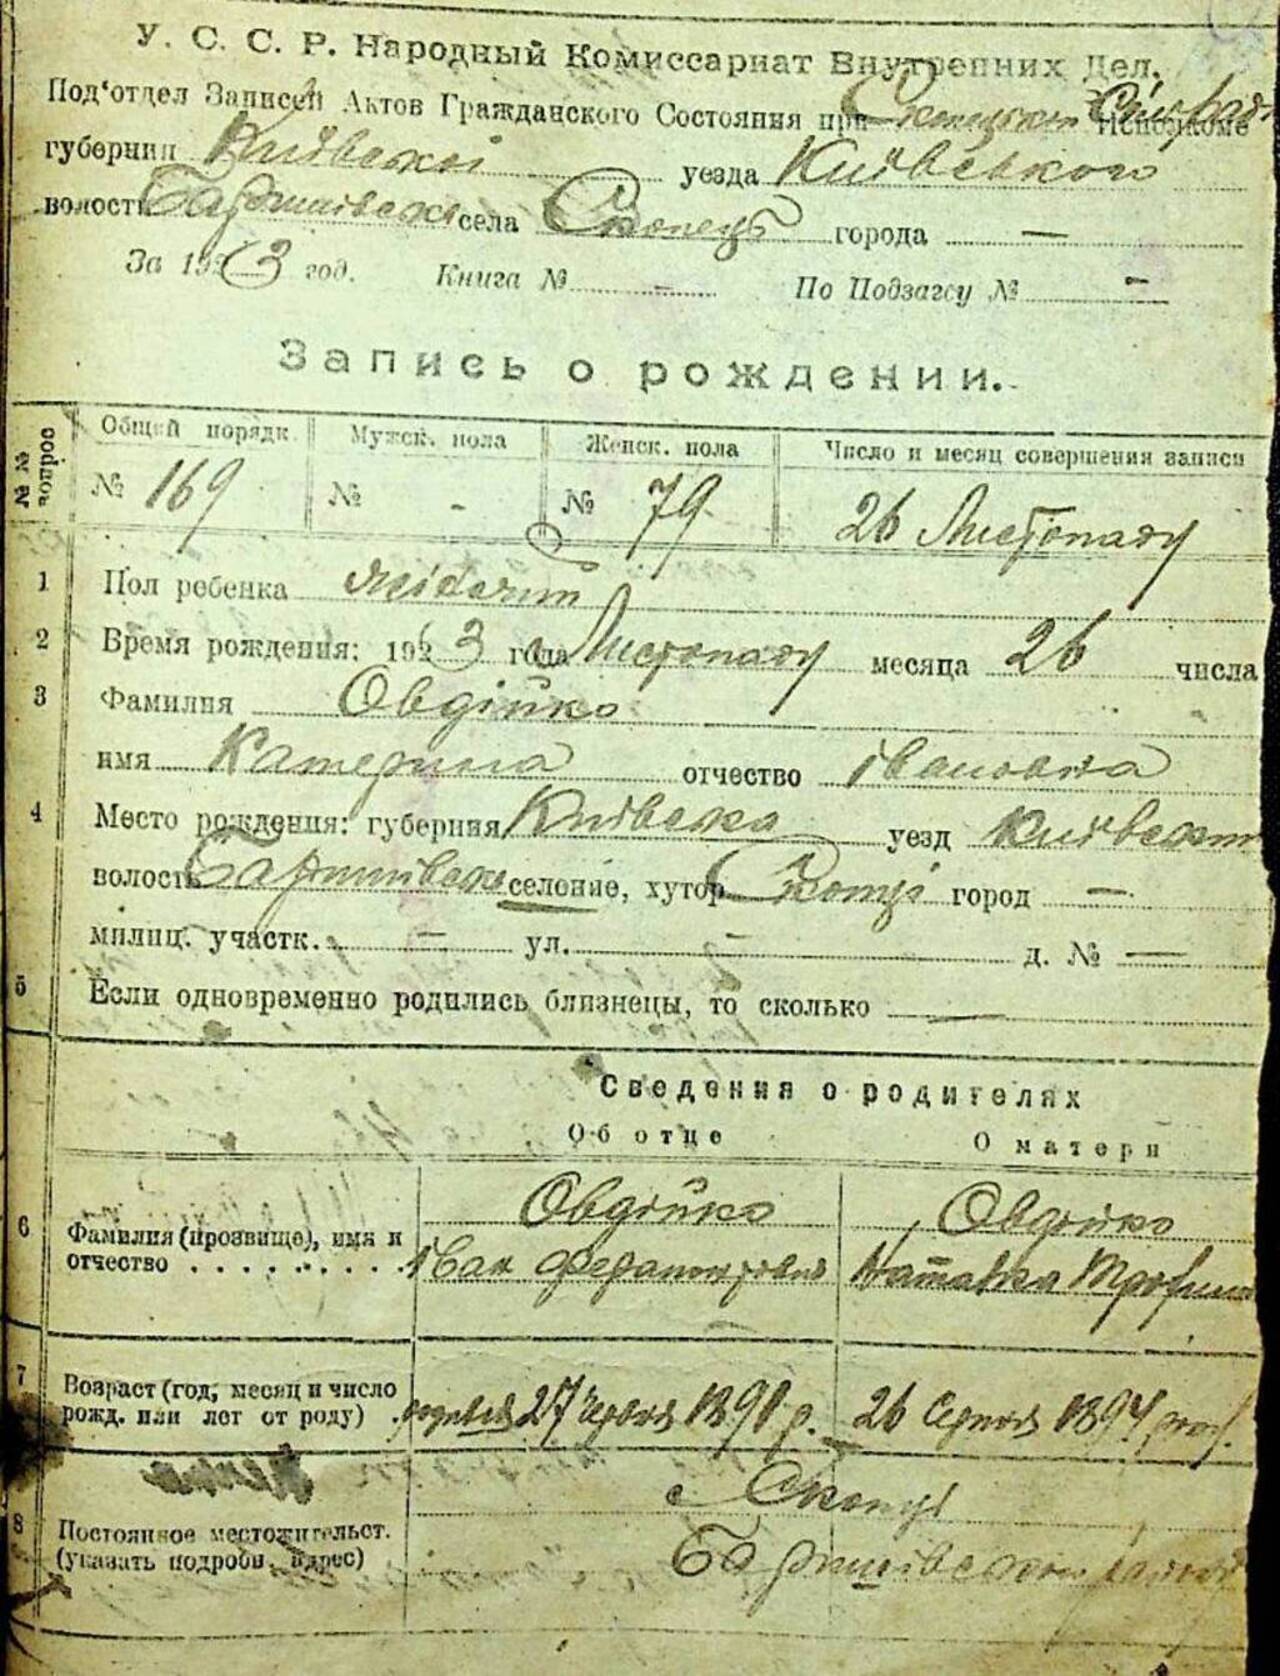 У. С. С. Р. Народный Комиссариат Внутренних Дел.
Под'отдел Записей Актов Гражданского Состояния при Исполкоме
губернии Київської уезда Київського
волости села Скопець города —
За 1923 год. Книга № - По Подзагсу № -
Запись о рождении.
№№ вопрос
Общей порядк. Мужск. пола Женск. пола Число и месяц совершения записи
№ 169 № - № 79 26 Листопаду
1 Пол ребенка
2 Время рождения: 1923 года Листопаду месяца 26 числа
3 Фамилия Овдійко
имя Катерина отчество Івановна
4 Место рождения: губерния Київська уезд
волость селение, хутор Скопці город —
милиц. участк. — ул. — д. № —
5 Если одновременно родились близнецы, то сколько —
Сведения о родителях
Об отце О матери
6 Фамилия (прозвище), имя и отчество Овдійко Овдійко
Іван Наталка
7 Возраст (год, месяц и число рожд. или лет от роду) 27 червня р. 26 Серпня 1894
8 Постоянное местожительст. (указать подробн. адрес) с Скопці